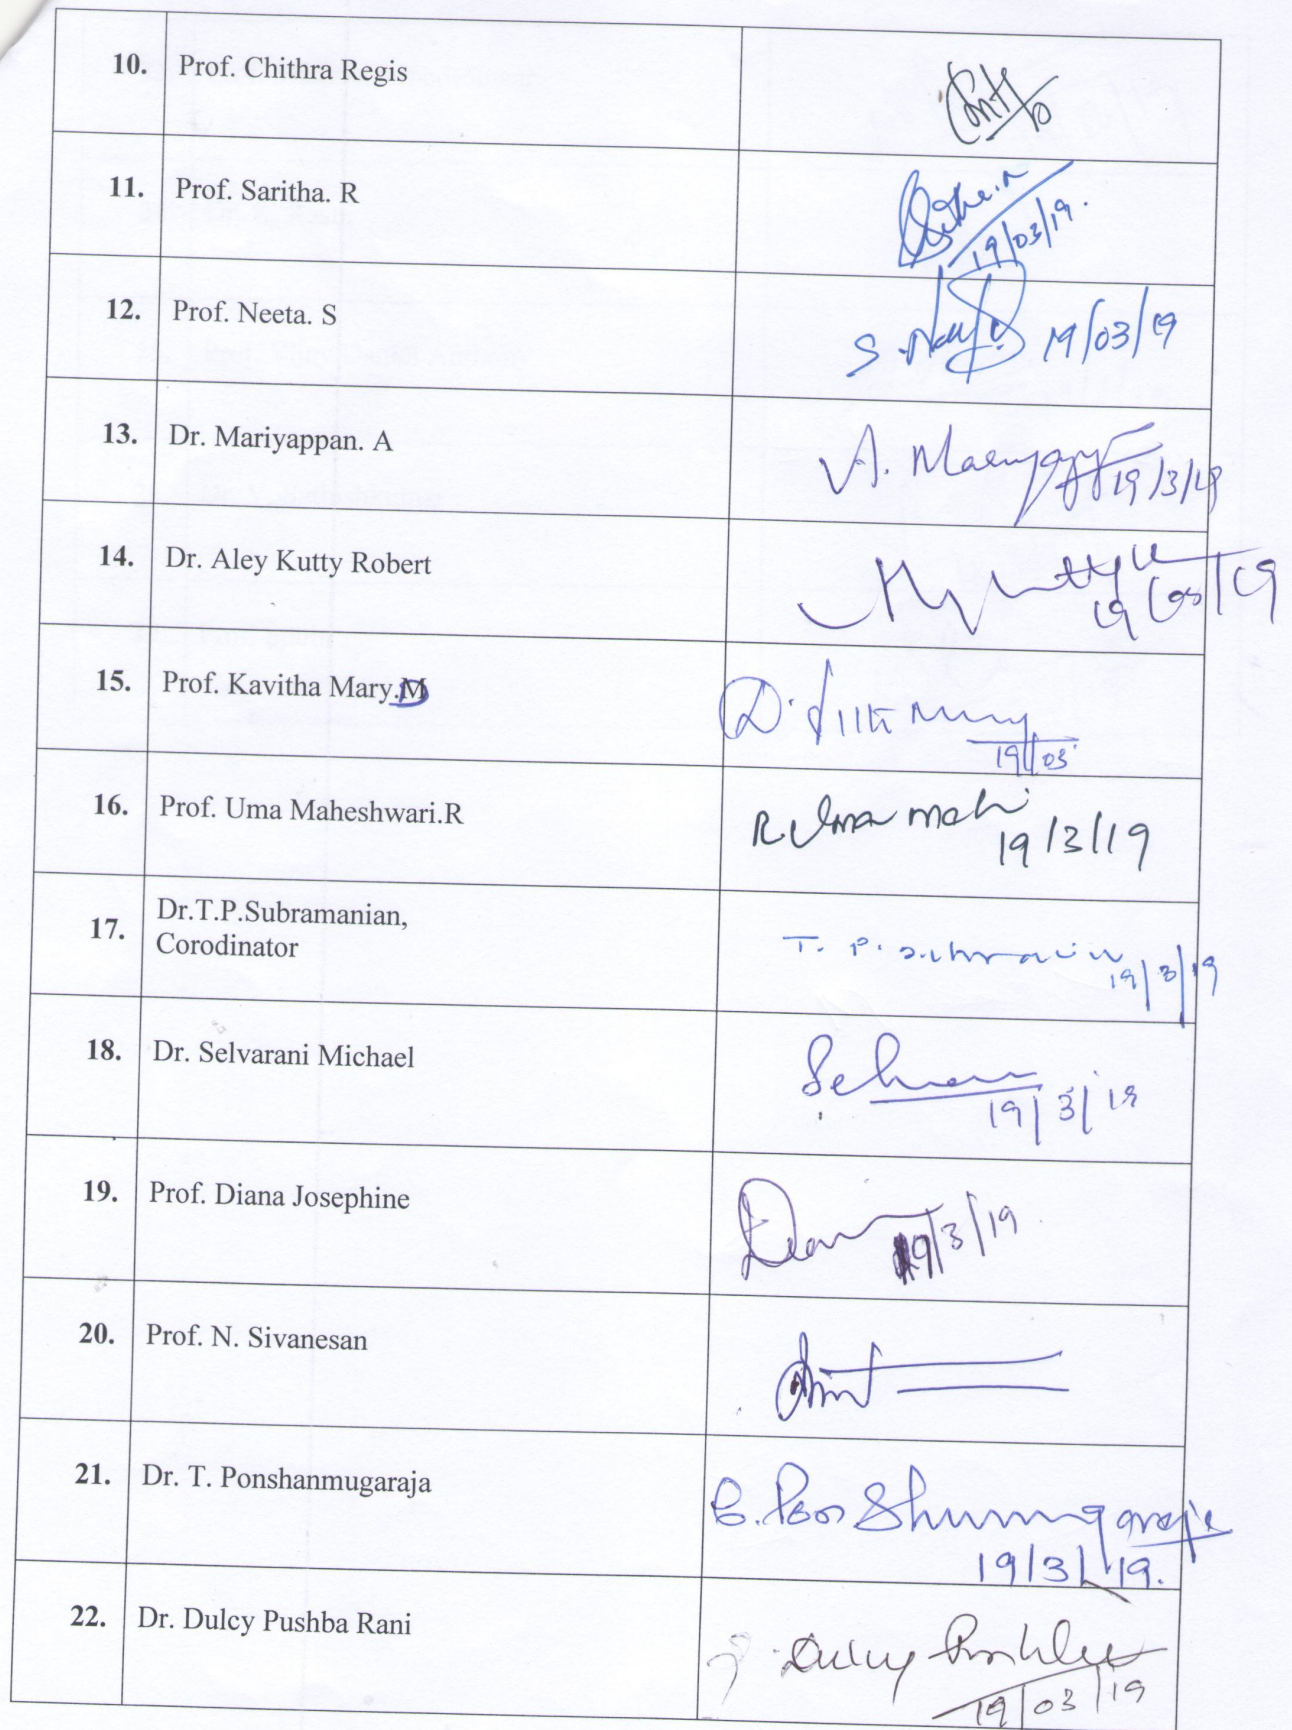 10. Prof. Chithra Regis
11. Prof. Saritha. R
19/03/19.
12. Prof. Neeta. S
S. 19/03/19
13. Dr. Mariyappan. A
A. 19/3/19
14. Dr. Aley Kutty Robert
19/03/19
15. Prof. Kavitha Mary.D
D. Mary
19/03
16. Prof. Uma Maheshwari.R
R Uma mah
19/3/19
17. Dr.T.P.Subramanian,
Corodinator
T. P.
19/3/19
18. Dr. Selvarani Michael
19/3/19
19. Prof. Diana Josephine
19/3/19
20. Prof. N. Sivanesan
21. Dr. T. Ponshanmugaraja
19/3/19.
22. Dr. Dulcy Pushba Rani
Dulcy
19/03/19